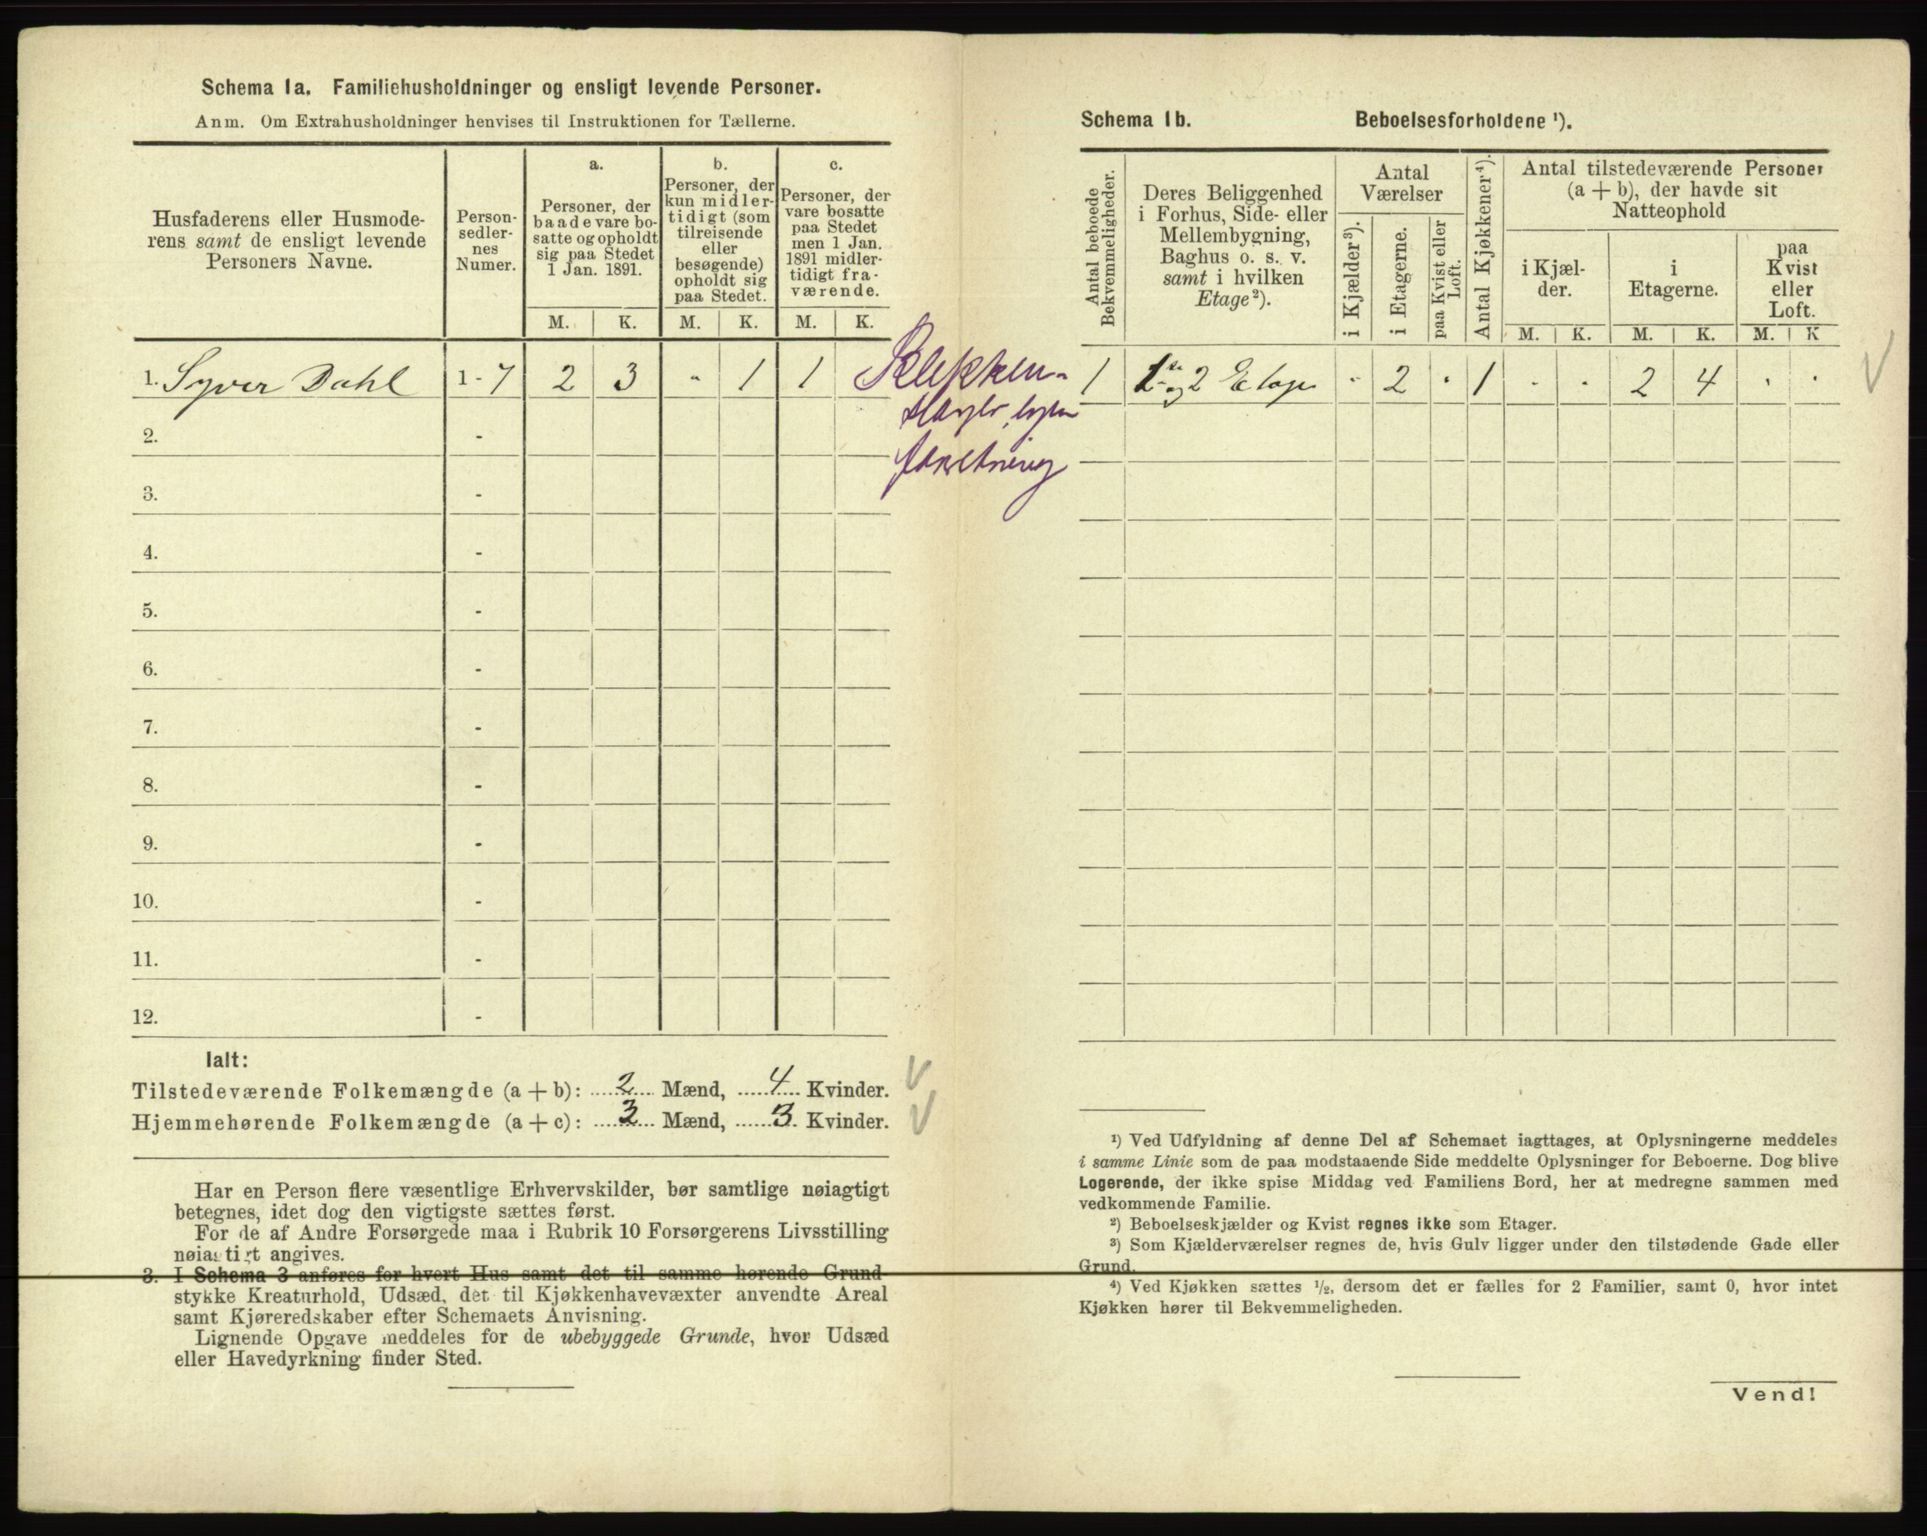 Schema 1a. Familiehusholdninger og ensligt levende Personer.
Anm. Om Extrahusholdninger henvises til Instruktionen for Tællerne.
Husfaderens eller Husmode-
rens samt de ensligt levende
Personers Navne.
Person-
sedler-
nes
Numer.
a.
Personer, der
baade vare bo-
satte og opholdt
sig paa Stedet
1 Jan. 1891.
b.
Personer, der
kun midler-
tidigt (som
tilreisende
eller
besøgende)
opholdt sig
paa Stedet.
c.
Personer, der
vare bosatte
paa Stedet
men 1 Jan.
1891 midler-
tidigt fra-
værende.
M. K. M. K. M. K.
1. Syver Dahl 1 - 7 2 3 - 1 1
2. -
3. -
4. -
5. -
6. -
7. -
8. -
9. -
10. -
11. -
12. -
Ialt:
Tilstedeværende Folkemængde (a + b): 2 Mænd, 4 Kvinder.
Hjemmehørende Folkemængde (a + c): 3 Mænd, 3 Kvinder.
Har en Person flere væsentlige Erhvervskilder, bør samtlige nøiagtigt
betegnes, idet dog den vigtigste sættes først.
For de af Andre Forsørgede maa i Rubrik 10 Forsørgerens Livsstilling
nøiagtigt angives.
3. I Schema 3 anføres for hvert Hus samt det til samme hørende Grund
stykke Kreaturhold, Udsæd, det til Kjøkkenhavevæxter anvendte Areal
samt Kjøreredskaber efter Schemaets Anvisning.
Lignende Opgave meddeles for de ubebyggede Grunde, hvor Udsæd
eller Havedyrkning finder Sted.
forretning
Schema 1b. Beboelsesforholdene ¹).
Antal beboede
Bekvemmeligheder.
Deres Beliggenhed
i Forhus, Side- eller
Mellembygning,
Baghus o. s. v.
samt i hvilken
Etage²).
Antal
Værelser
i Kjælder³).
i Etagerne.
paa Kvist eller
Loft.
Antal Kjøkkener⁴).
Antal tilstedeværende Personer
(a + b), der havde sit
Natteophold
i Kjæl-
der.
i
Etagerne.
paa
Kvist
eller
Loft.
M. K. M. K. M. K
1 1ste og 2 Etage - 2 - 1 - - 2 4 - -
¹) Ved Udfyldning af denne Del af Schemaet iagttages, at Oplysningerne meddeles
i samme Linie som de paa modstaaende Side meddelte Oplysninger for Beboerne. Dog blive
Logerende, der ikke spise Middag ved Familiens Bord, her at medregne sammen med
vedkommende Familie.
²) Beboelseskjælder og Kvist regnes ikke som Etager.
³) Som Kjælderværelser regnes de, hvis Gulv ligger under den tilstødende Gade eller
Grund.
⁴) Ved Kjøkken sættes ½, dersom det er fælles for 2 Familier, samt 0, hvor intet
Kjøkken hører til Bekvemmeligheden.
Vend!